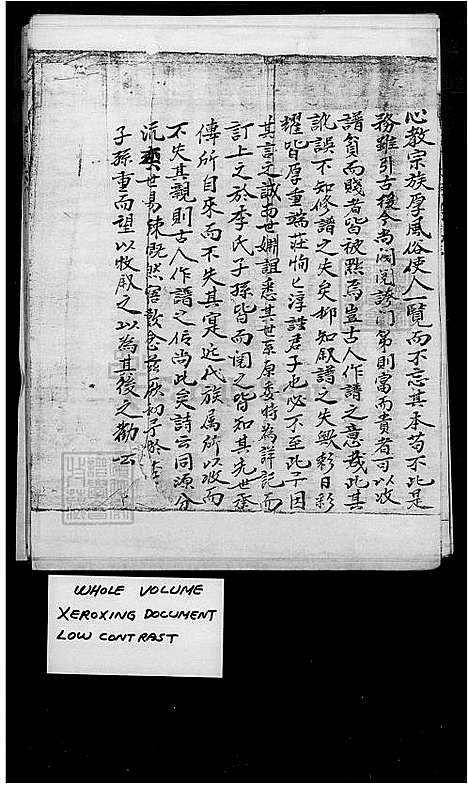 心教宗族厚風俗使人一覽而不忘其本苟不此是
務雖引古援今尚閥閱誇門第則富而貴者可以收
譜貧而賤者皆被黜焉豈古人作譜之意哉此其
訛誤不知修譜之失矣抑知叙譜之失歟彰日彰
耀皆厚重端莊恂〻淳謹君子也必不至此予因
其言之誠而世姻誼悉其世系原委特為詳記而
訂上之於李氏子孫皆而閱之皆知其先世承
傳所自來而不失其寔近代族属所以收而
不失其親則古人作譜之俗尚此矣詩云同源分
流世易疎既然寤歎念茲厥初予於李
子孫重而望以收厥之以為其後之勸云
WHOLE VOLUME
XEROXING DOCUMENT
LOW CONTRAST